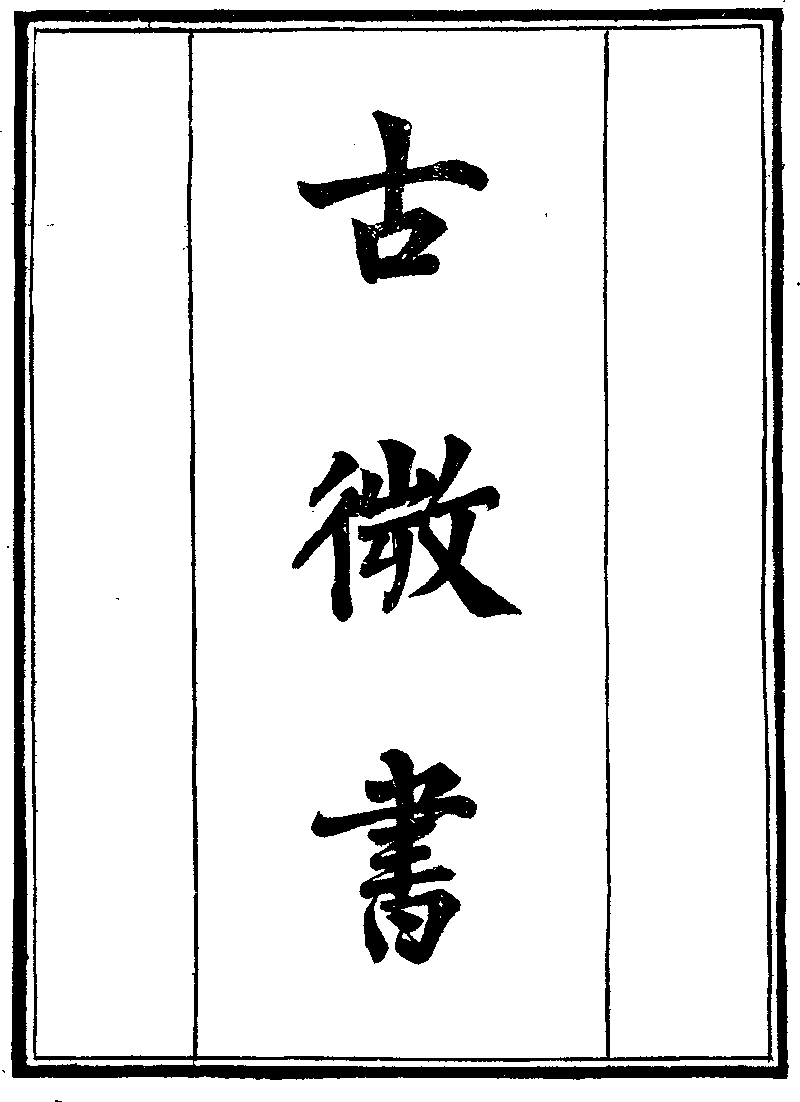 古微書